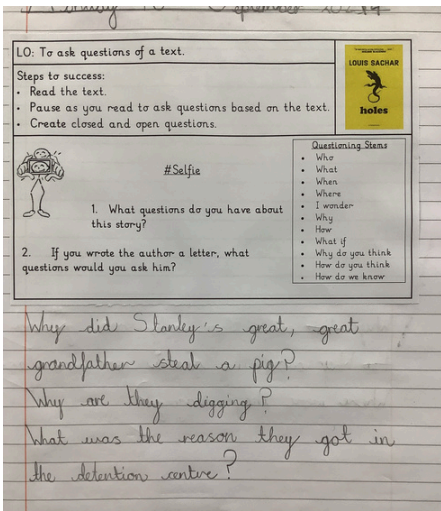 LO: To ask questions of a text.
Steps to success:
• Read the text.
• Pause as you read to ask questions based on the text.
• Create closed and open questions.
LOUIS SACHAR
holes
#Selfie
1. What questions do you have about
this story?
2. If you wrote the author a letter, what
questions would you ask him?
Questioning Stems
• Who
• What
• When
• Where
• I wonder
• Why
• How
• What if
• Why do you think
• How do you think
• How do we know
Why did Stanley's great, great
grandfather steal a pig?
Why are they digging?
What was the reason they got in
the detention centre?